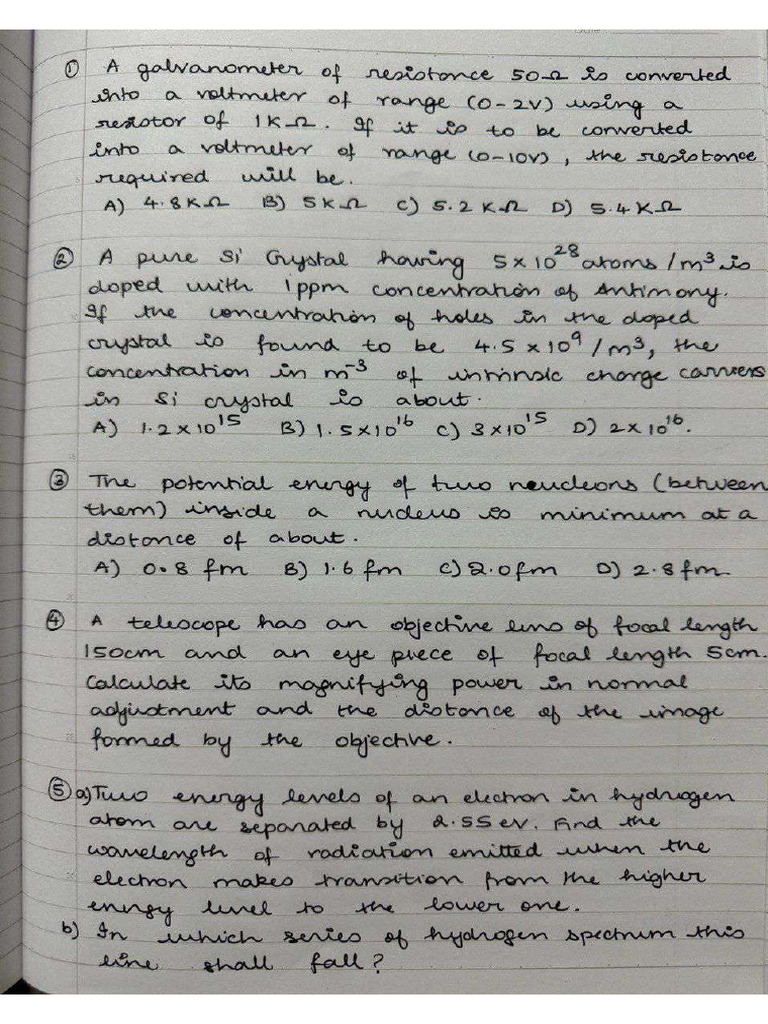 ① A galvanometer of resistance 50Ω is converted
into a voltmeter of range (0-2V) using a
resistor of 1KΩ. If it is to be converted
into a voltmeter of range (0-10V), the resistance
required will be.
A) 4.8KΩ B) 5KΩ C) 5.2KΩ D) 5.4KΩ
② A pure Si Crystal having 5×10²⁸ atoms/m³ is
doped with 1ppm concentration of Antimony.
If the concentration of holes in the doped
crystal is found to be 4.5×10⁹/m³, the
concentration in m⁻³ of intrinsic charge carriers
in Si crystal is about.
A) 1.2×10¹⁵ B) 1.5×10¹⁶ C) 3×10¹⁵ D) 2×10¹⁶.
③ The potential energy of two neucleons (between
them) inside a nucleus is minimum at a
distance of about.
A) 0.8 fm B) 1.6 fm C) 2.0fm D) 2.8fm
④ A telescope has an objective lens of focal length
150cm and an eye piece of focal length 5cm.
Calculate its magnifying power in normal
adjustment and the distance of the image
formed by the objective.
⑤ a) Two energy levels of an electron in hydrogen
atom are separated by 2.55eV. Find the
wavelength of radiation emitted when the
electron makes transition from the higher
energy level to the lower one.
b) In which series of hydrogen spectrum this
line shall fall?